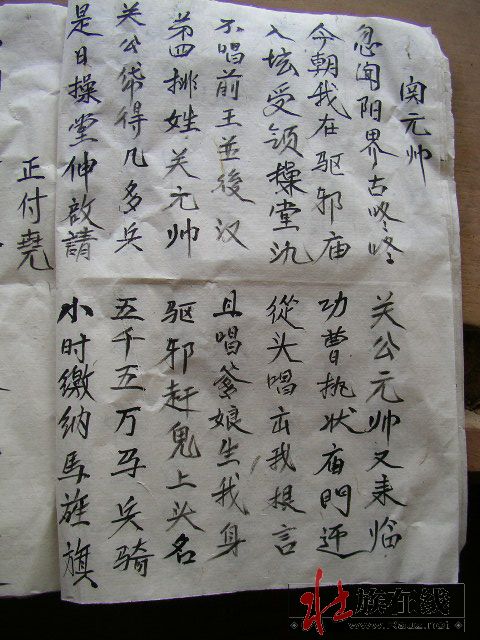 関元帅
忽闻阳界古咚咚 关公元帅又来临
今朝我在驱邪庙 功曹执状庙門迎
入坛受领操堂氿 從头唱出我根言
不唱前王並後汉 且唱爹娘生我身
第四排姓关元帅 驱邪赶鬼上头名
关公帒得几多兵 五千五万马兵骑
是日操堂伸啟請 小时缴纳馬旌旗
正付堯
壮族在线